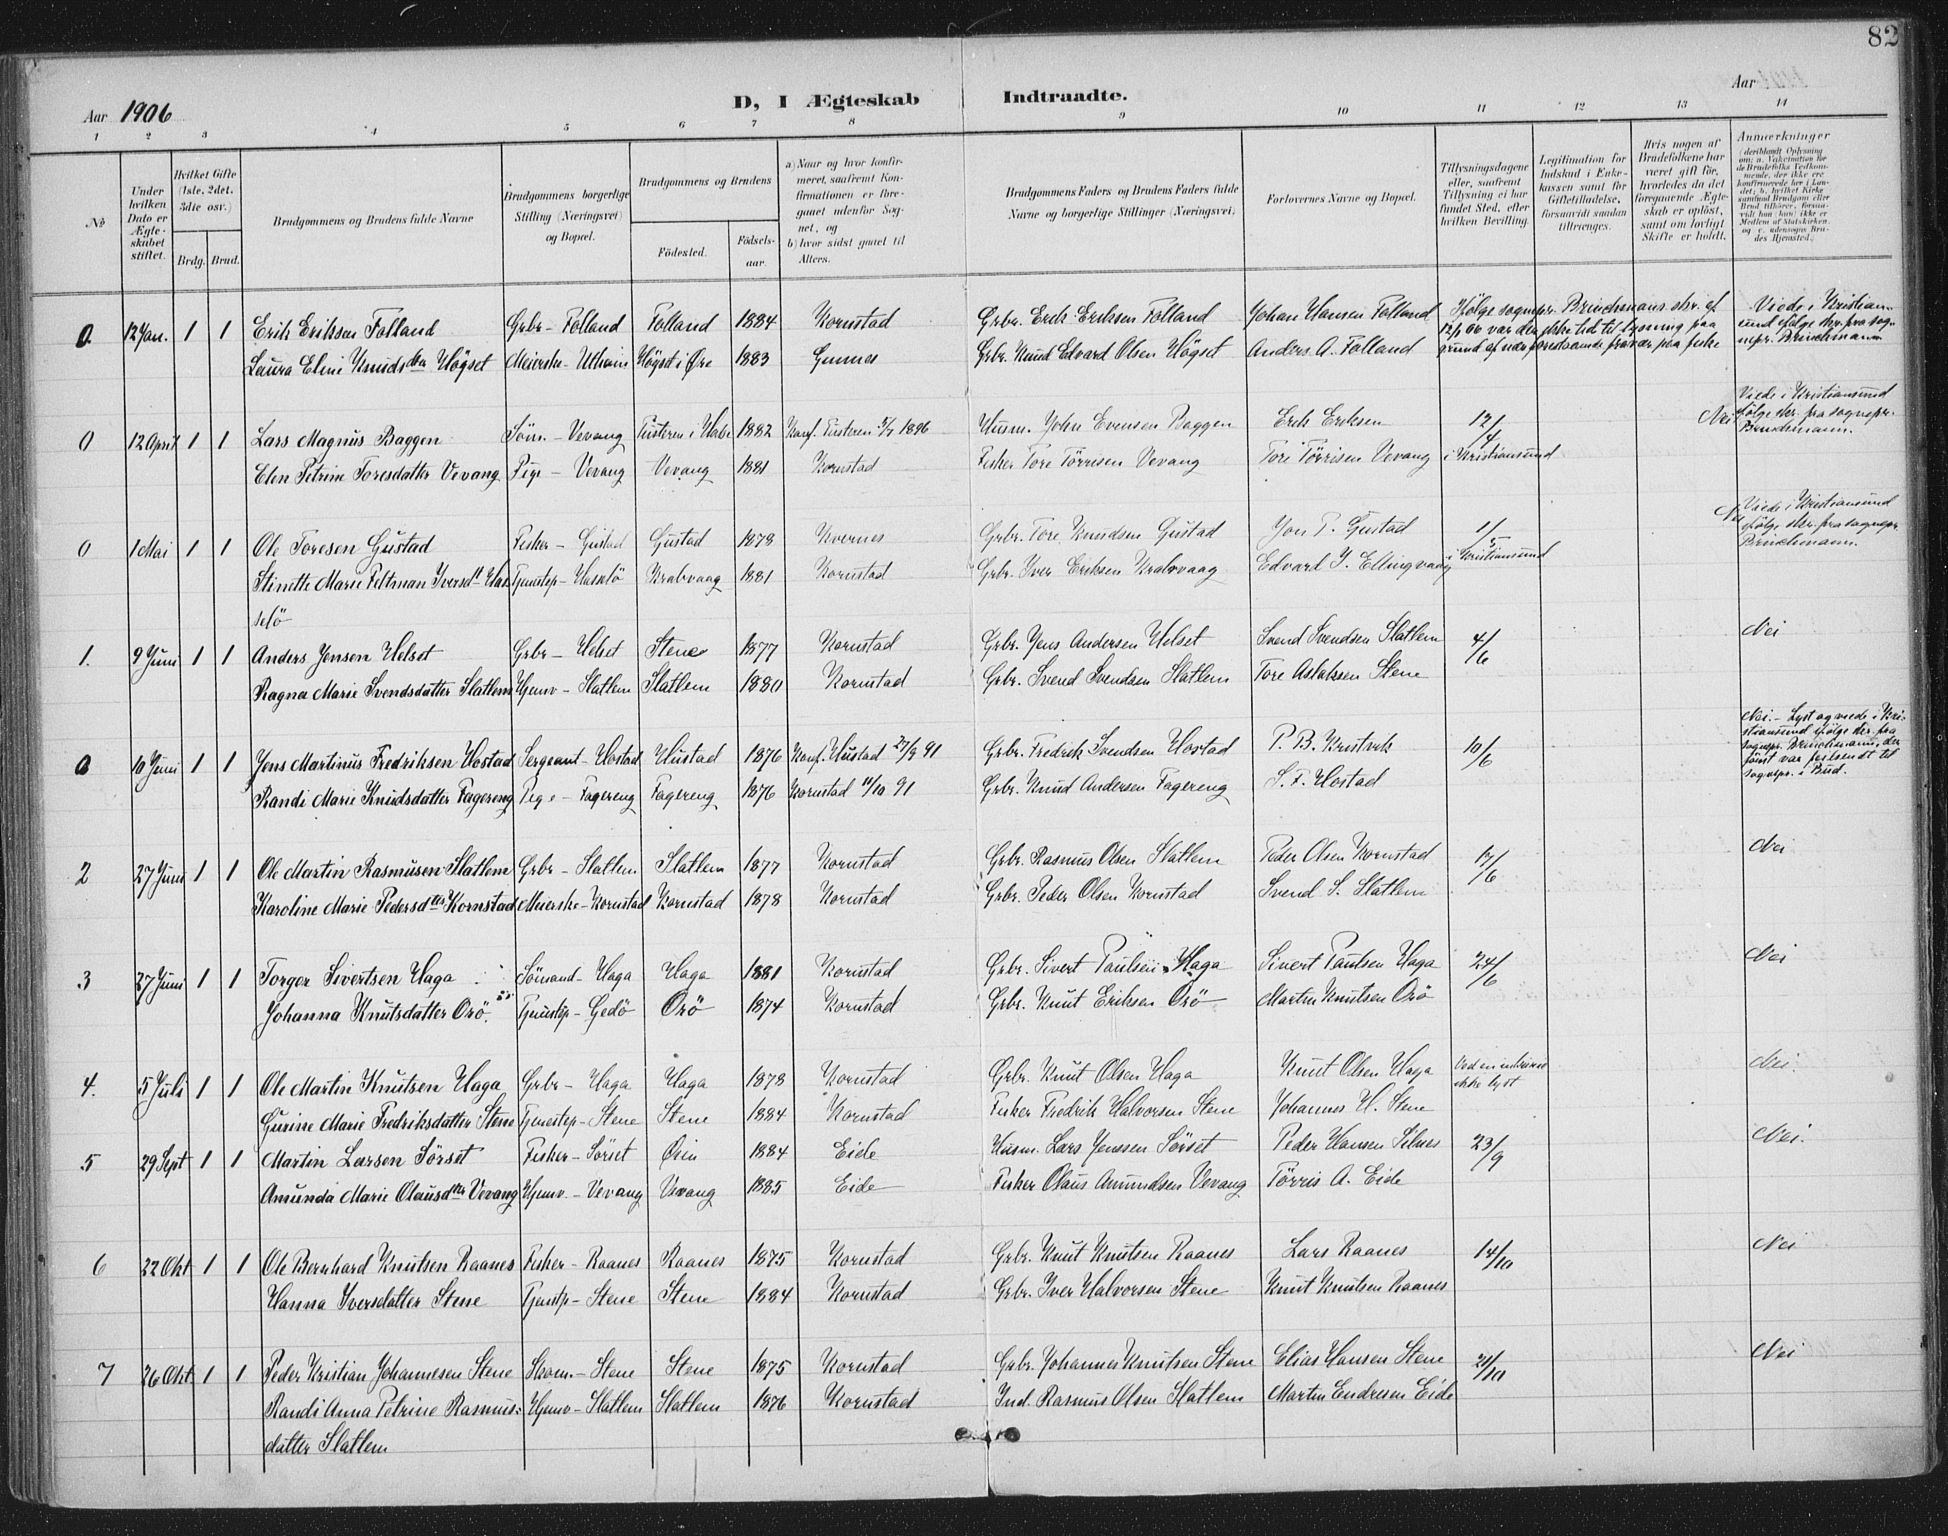 82
Aar 1906
D, I Ægteskab Indtraadte.
Aar
1 2 3 4 5 6 7 8 9 10 11 12 13 14
No
Under hvilken Dato er Ægteskabet stiftet.
Hvilket Gifte (1ste, 2det, 3die osv.)
Brdg. Brud.
Brudgommens og Brudens fulde Navne
Brudgommens borgerlige Stilling (Næringsvei) og Bopæl.
Brudgommens og Brudens
Fødested.
Fødselsaar.
a) Naar og hvor konfirmeret, saafremt Konfirmationen er foregaaet udenfor Sognet, og
b) hvor sidst gaaet til Alters.
Brudgommens Faders og Brudens Faders fulde Navne og borgerlige Stillinger (Næringsvei)
Forlovernes Navne og Bopæl.
Tillysningsdagene eller, saafremt Tillysning ei har fundet Sted, efter hvilken Bevilling.
Legitimation for Indskud i Enkekassen samt for Giftetilladelse, forsaavidt saadan tiltrænges.
Hvis nogen af Brudefolkene har været gift før, hvorledes da det foregaaende Ægteskab er opløst, samt om lovligt Skifte er holdt.
Anmærkninger
0. 12 Jan. 1 1 Erik Eriksen Folland Grbr - Folland Folland 1884 Kornstad Grbr. Erik Eriksen Folland Johan Hansen Folland Ifølge sognepr. Brinchmans skr. af 12/1 06 var der ikke tid til lysning paa grund af nær forestaaende fravær paa fiske Viede i Kristiansund ifølge skr. fra sognepr. Brinchmann
Laura Elini Knudsdtr Høgset Meierske - Utheim Høgset i Øre 1883 Gimnes Grbr. Knud Edvard Olsen Høgset Anders A. Folland
0 12 April 1 1 Lars Magnus Baggen Søm. - Vevang Tusteren i Halse 1882 Konf. Tusteren 1896 Husm. John Evensen Baggen Erik Eriksen 12/4 i Kristiansund Nei Viede i Kristiansund ifølge skr. fra sognepr. Brinchmann.
Elen Petrine Toresdatter Vevang Pige - Vevang Vevang 1881 Kornstad Fisker Tore Tørrisen Vevang Tore Tørrisen Vevang
0 1 Mai 1 1 Ole Toresen Gustad Fisker - Gustad Gustad 1878 Kvernes Grbr. Tore Knudsen Gustad Jon P. Gustad 1/5 i Kristiansund Nei Viede i Kristiansund ifølge skr. fra sognepr. Brinchmann.
Stinette Marie Feltman Iversdtr Has Tjenestep - Hasselø Krabvaag 1881 Kornstad Grbr. Iver Eriksen Krabvaag Edvard J. Ellingvaag
selø
1. 9 Juni 1 1 Anders Jensen Helset Grbr - Helset Stene 1877 Kornstad Grbr. Jens Andersen Helset Svend Svendsen Slatlem 4/6 Nei
Ragna Marie Svendsdatter Slatlem Hjemv - Slatlem Slatlem 1880 Kornstad Grbr. Svend Svendsen Slatlem Tore Aslaksen Stene
0 10 Juni 1 1 Jens Martinus Fredriksen Hostad Sergeant - Hostad Hustad 1876 Konf. Hustad 27/9 91 Grbr. Fredrik Svendsen Hostad P. B. Kristvik 10/6 Nei. - Lyst og viede i Kristiansund ifølge skr. fra sognepr. Brinchmann, der først var feilsendt til sognepr. i Bud.
Randi Marie Knudsdatter Fagereng Pige - Fagereng Fagereng 1876 Kornstad 11/10 91 Grbr. Knud Andersen Fagereng S. F. Hostad
2 27 Juni 1 1 Ole Martin Rasmusen Slatlem Grbr - Slatlem Slatlem 1877 Kornstad Grbr. Rasmus Olsen Slatlem Peder Olsen Kornstad 17/6 Nei
Karoline Marie Pedersdtr Kornstad Meierske - Kornstad Kornstad 1878 Kornstad Grbr. Peder Olsen Kornstad Svend S. Slatlem
3 27 Juni 1 1 Torger Sivertsen Haga Sømand - Haga Haga 1881 Kornstad Grbr. Sivert Paulsen Haga Sivert Paulsen Haga 24/6 Nei
Johanna Knutsdatter Orø Tjenestep - Gedø Orø 1874 Kornstad Grbr. Knut Eriksen Orø Martin Knutsen Orø
4. 5 Juli 1 1 Ole Martin Knutsen Haga Grbr - Haga Haga 1878 Kornstad Grbr. Knut Olsen Haga Knut Olsen Haga Ved en ikke lyst Nei.
Gurine Marie Fredriksdatter Stene Tjenestep - Stene Stene 1884 Kornstad Fisker Fredrik Halvorsen Stene Johannes H. Stene
5 29 Sept 1 1 Martin Larsen Sørset Fisker - Sørset Øien 1884 Eide Husm. Lars Jenssen Sørset Peder Hansen Silnes 23/9 Nei.
Amunda Marie Olausdtr Vevang Hjemv. - Vevang Vevang 1885 Eide Fisker Olaus Amundsen Vevang Tørris A. Eide
6 22 Okt 1 1 Ole Bernhard Knutsen Raanes Fisker - Raanes Raanes 1875 Kornstad Grbr. Knut Knutsen Raanes Lars Raanes 14/10 Nei
Hanna Iversdatter Stene Tjenstp - Stene Stene 1884 Kornstad Grbr. Iver Halvorsen Stene Knut Knutsen Raanes
7 26 Okt 1 1 Peder Kristian Johannesen Stene Skom. - Stene Stene 1875 Kornstad Grbr. Johannes Knutsen Stene Elias Hansen Stene 21/10 Nei
Randi Anna Petrine Rasmus- Hjemv - Slatlem Slatlem 1876 Kornstad Ind. Rasmus Olsen Slatlem Martin Endresen Eide
datter Slatlem